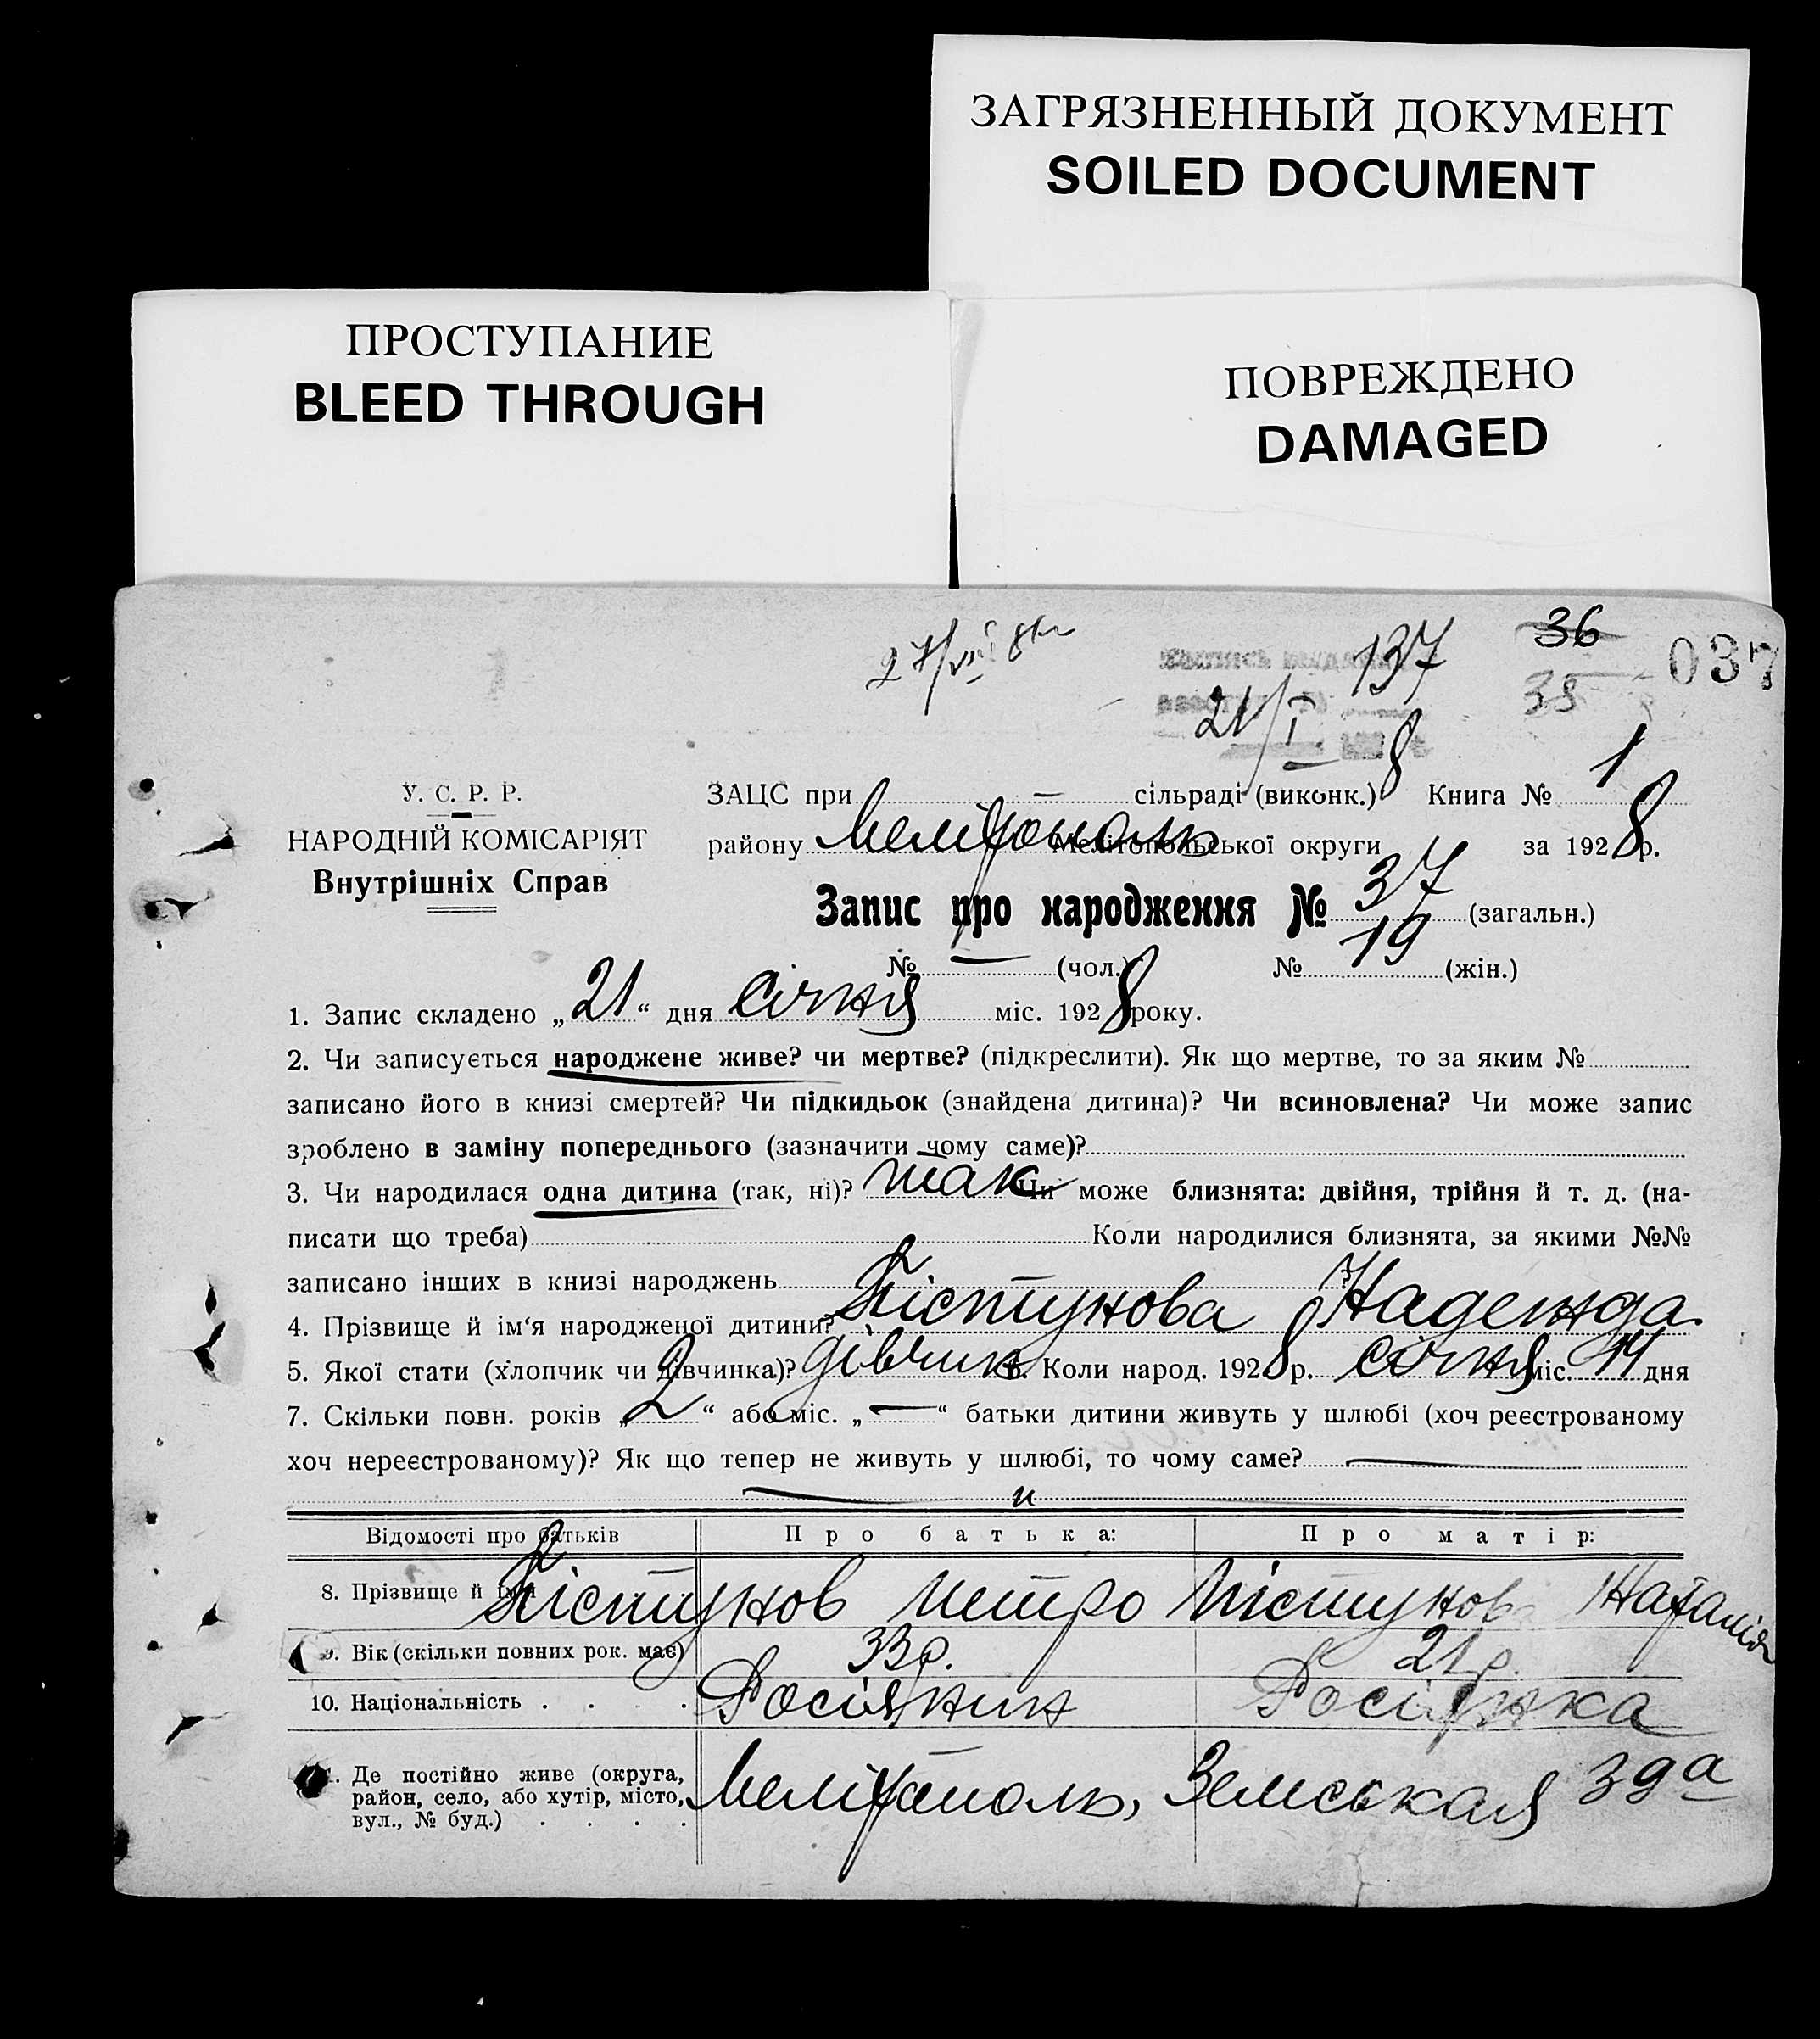 ЗАГРЯЗНЕННЫЙ ДОКУМЕНТ
SOILED DOCUMENT
ПРОСТУПАНИЕ
BLEED THROUGH
ПОВРЕЖДЕНО
DAMAGED
27/VIII 81
137
36
35
037
21/I 8
У. С. Р. Р.
НАРОДНІЙ КОМІСАРІЯТ
Внутрішніх Справ
ЗАЦС при — сільраді (виконк.) Книга № 1
району Мелітополь Мелітопольської округи за 1928 р.
Запис про народження № 37 (загальн.)
№ — (чол.) № 19 (жін.)
1. Запис складено „21“ дня січня міс. 1928 року.
2. Чи записується народжене живе? чи мертве? (підкреслити). Як що мертве, то за яким №
записано його в книзі смертей? Чи підкидьок (знайдена дитина)? Чи всиновлена? Чи може запис
зроблено в заміну попереднього (зазначити чому саме)?
3. Чи народилася одна дитина (так, ні)? так Чи може близнята: двійня, трійня й т. д. (на-
писати що треба) Коли народилися близнята, за якими №№
записано інших в книзі народжень ?
4. Прізвище й ім‘я народженої дитини? Пістунова Надежда
5. Якої стати (хлопчик чи дівчинка)? дівчинк 6. Коли народ. 1928 р. січня міс. 14 дня
7. Скільки повн. років „2“ або міс. „—“ батьки дитини живуть у шлюбі (хоч реєстрованому
хоч нереєстрованому)? Як що тепер не живуть у шлюбі, то чому саме? —
— "
Відомості про батьків Про батька: Про матір:
8. Прізвище й ім‘я Пістунов Петро Пістунова Наталія
9. Вік (скільки повних рок. має) 33 р. 21 р.
10. Національність . . . Росіянин Росіянка
Де постійно живе (округа,
район, село, або хутір, місто,
вул., № буд.) . . . . Мелітополь, Земськая 39а